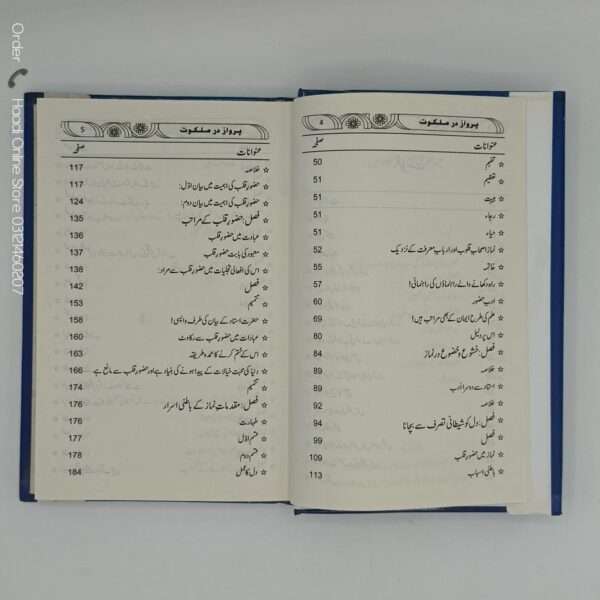 پرواز در ملکوت 4
عنوانات صفحہ
☆ تتمیم 50
☆ تعظیم 51
☆ ہیبت 51
☆ رجاء 51
☆ حیاء 51
☆ نماز اصحاب قلوب اور ارباب معرفت کے نزدیک 52
☆ خاتمہ 55
☆ راہ دکھانے والے راہنماؤں کی راہنمائی! 57
☆ ادب حضور 60
☆ علم کی طرح ایمان کے بھی مراتب ہیں! 69
☆ اس پر دلیل 80
☆ فصل: خشوع و خضوع در نماز 84
☆ خلاصہ 89
☆ استاد سے دوسرا ادب 89
☆ خلاصہ 92
☆ فصل: دل کو شیطانی تصرف سے بچانا 94
☆ فصل 99
☆ نماز میں حضور قلب 109
☆ باطنی اسباب 113
پرواز در ملکوت 5
عنوانات صفحہ
☆ خلاصہ 117
☆ حضور قلب کی اہمیت میں بیان اوّل: 117
☆ حضور قلب کی اہمیت میں بیان دوم: 124
☆ فصل: حضور قلب کے مراتب 135
☆ عبادت میں حضور قلب 136
☆ معبود کی بابت حضور قلب 137
☆ اس کی افعالی تجلیات میں حضور قلب سے مراد: 138
☆ فصل 142
☆ تتمیم 153
☆ حضرت استاد کے بیان کی طرف واپسی! 158
☆ عبادات میں حضور قلب سے رکاوٹ 160
☆ اس کے ختم کرنے کا عمدہ طریقہ 163
☆ دنیا کی محبت خیالات کے پیدا ہونے کی بنیاد ہے اور حضور قلب سے مانع ہے 166
☆ تتمیم 174
☆ فصل: مقدمات نماز کے باطنی اسرار 176
☆ طہارت 176
☆ قسم اوّل 177
☆ قسم دوم 178
☆ دل کا عمل 184
Order Haadi Online Store 03124460207